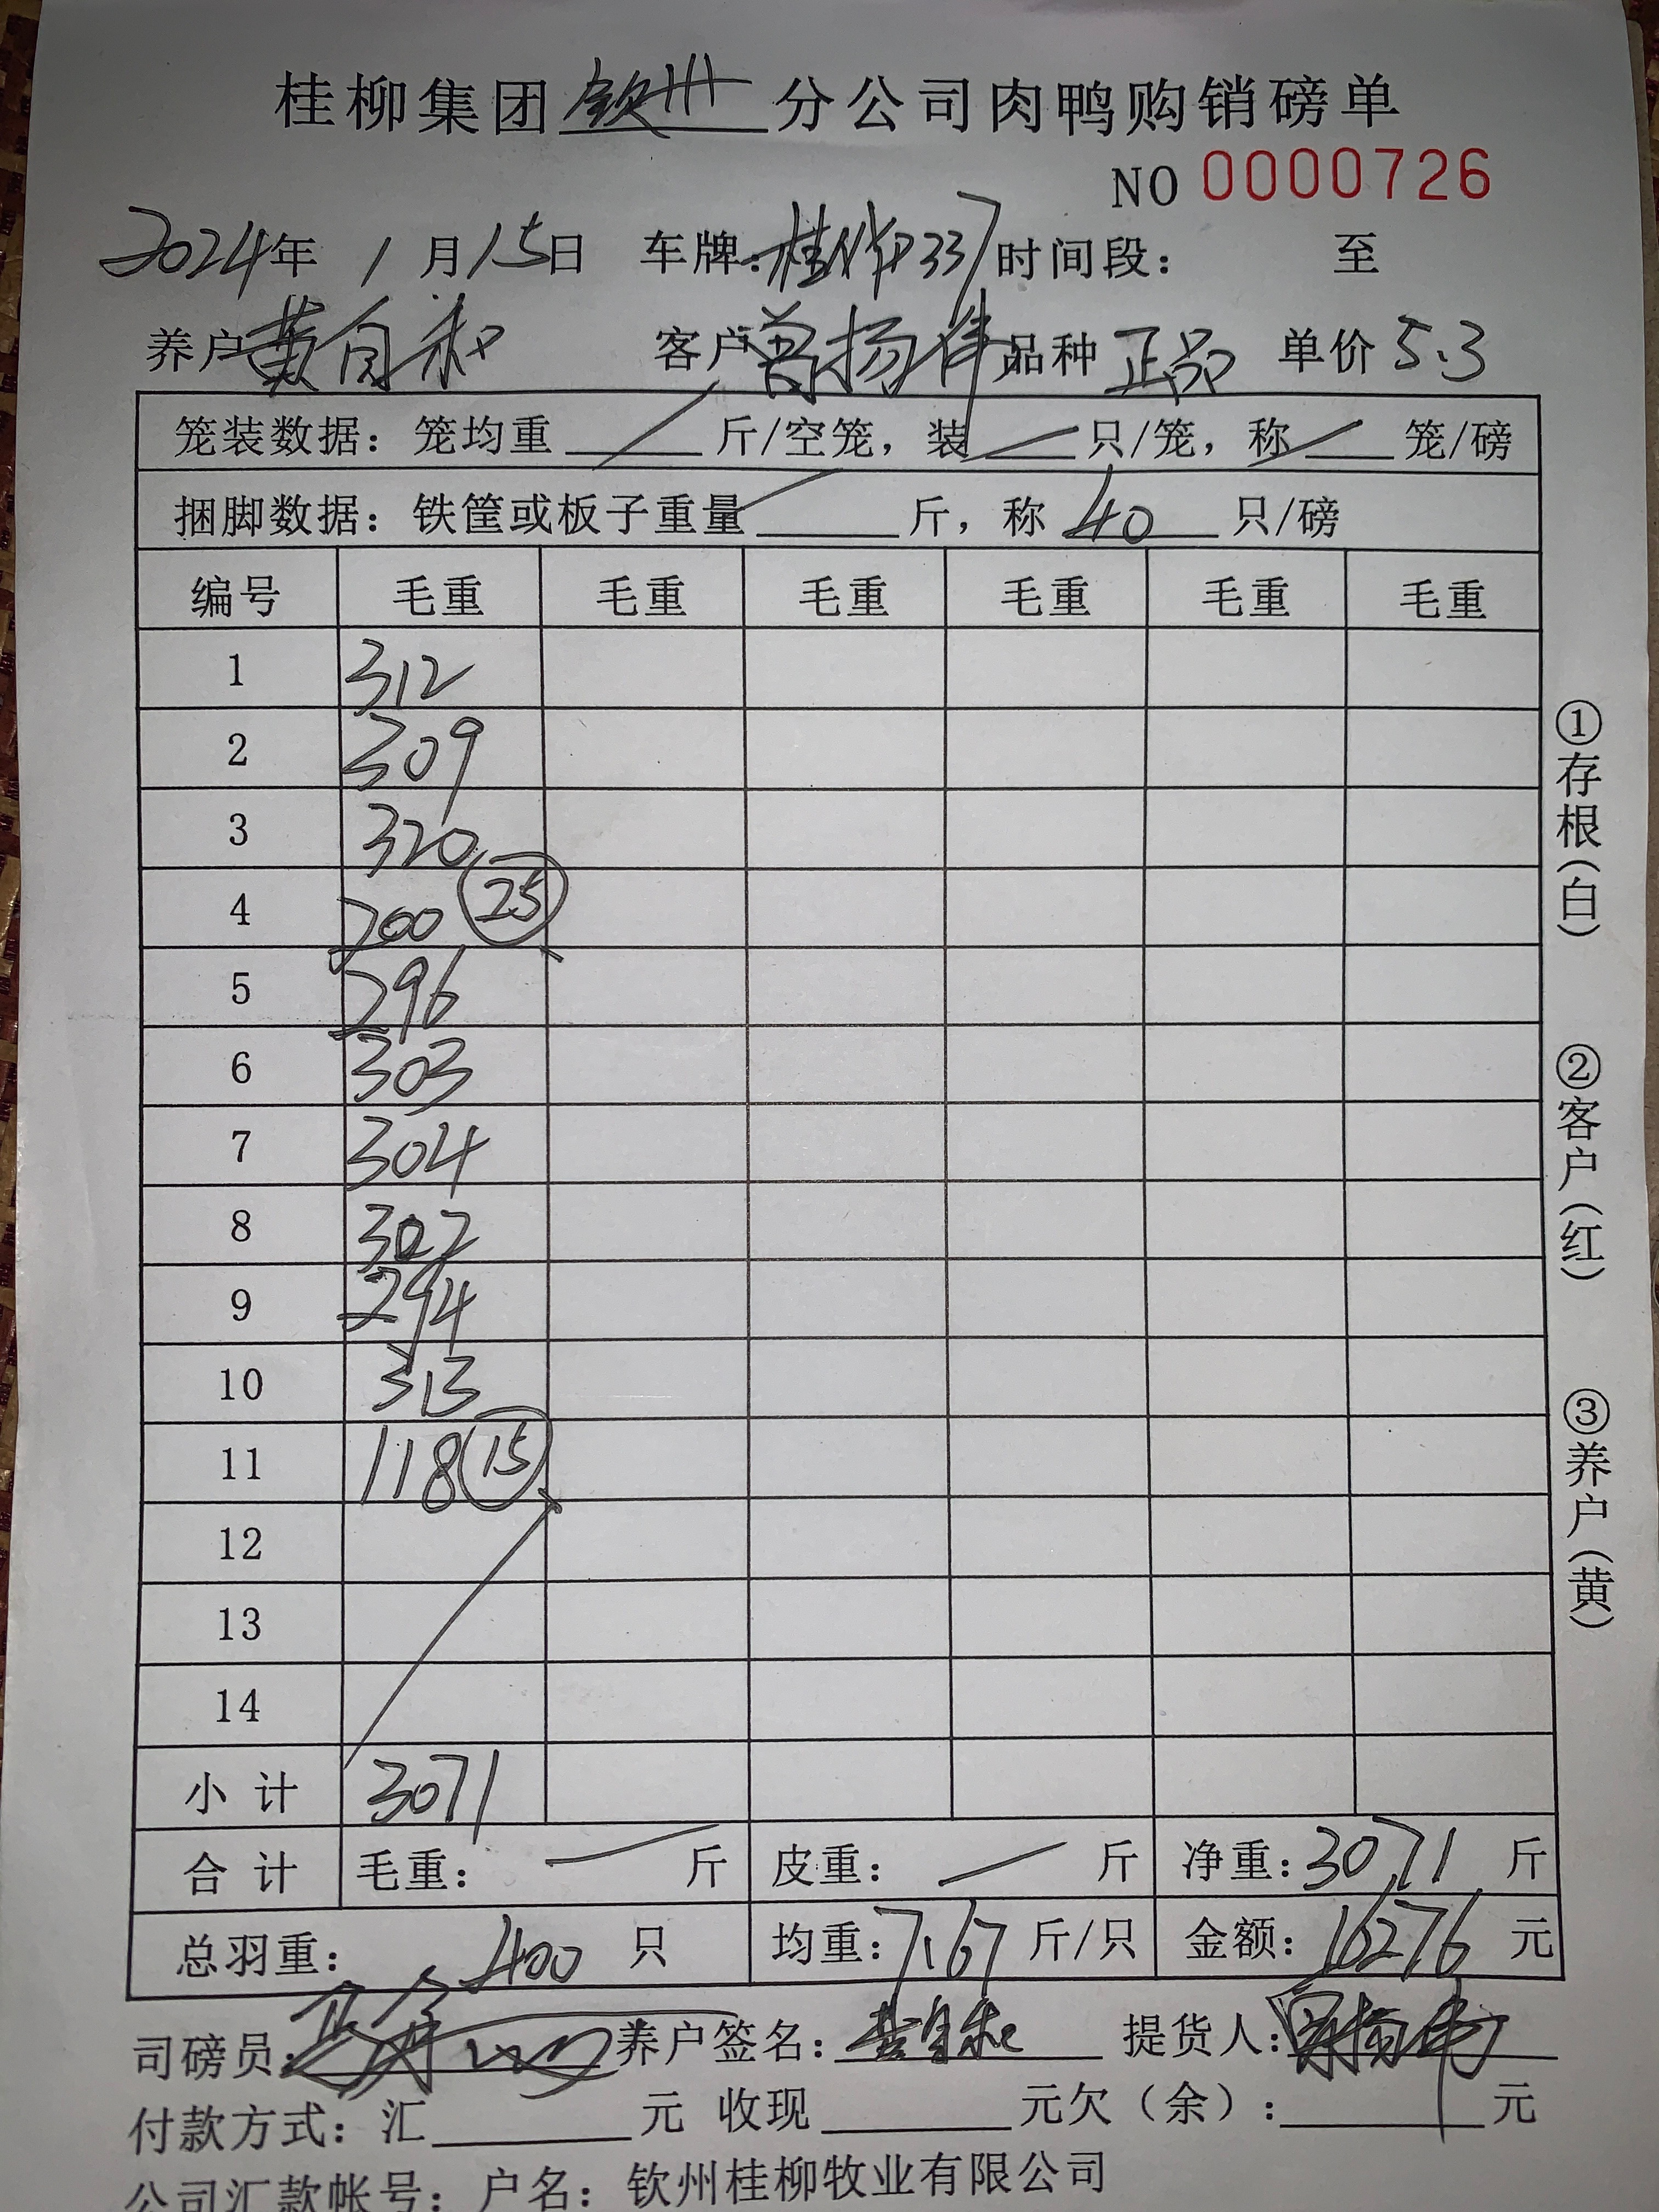 桂柳集团钦州分公司肉鸭购销磅单
NO 0000726
2024年 1月15日 车牌: 时间段: 至
养户黄自和 客户曾扬伟 品种 正品 单价 5.3
笼装数据: 笼均重 / 斤/空笼, 装 / 只/笼, 称 / 笼/磅
捆脚数据: 铁筐或板子重量 / 斤, 称 40 只/磅
编号 毛重 毛重 毛重 毛重 毛重 毛重
1 312
2 309
3 320
4 200 25
5 296
6 303
7 304
8 302
9 294
10 313
11 118 15
12
13
14
小计 3071
合计 毛重: / 斤 皮重: / 斤 净重: 3071 斤
总羽重: 400 只 均重: 7.67 斤/只 金额: 16276 元
司磅员: 养户签名: 黄自和 提货人:
付款方式: 汇 元 收现 元欠(余): 元
公司汇款帐号: 户名: 钦州桂柳牧业有限公司
①存根(白)
②客户(红)
③养户(黄)